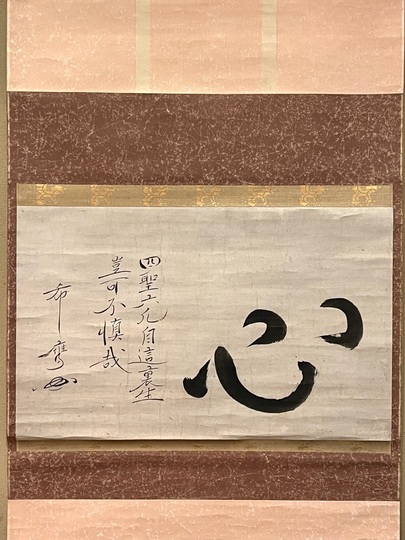 心
四聖六凡自這裏生
豈可不慎哉
布鷹